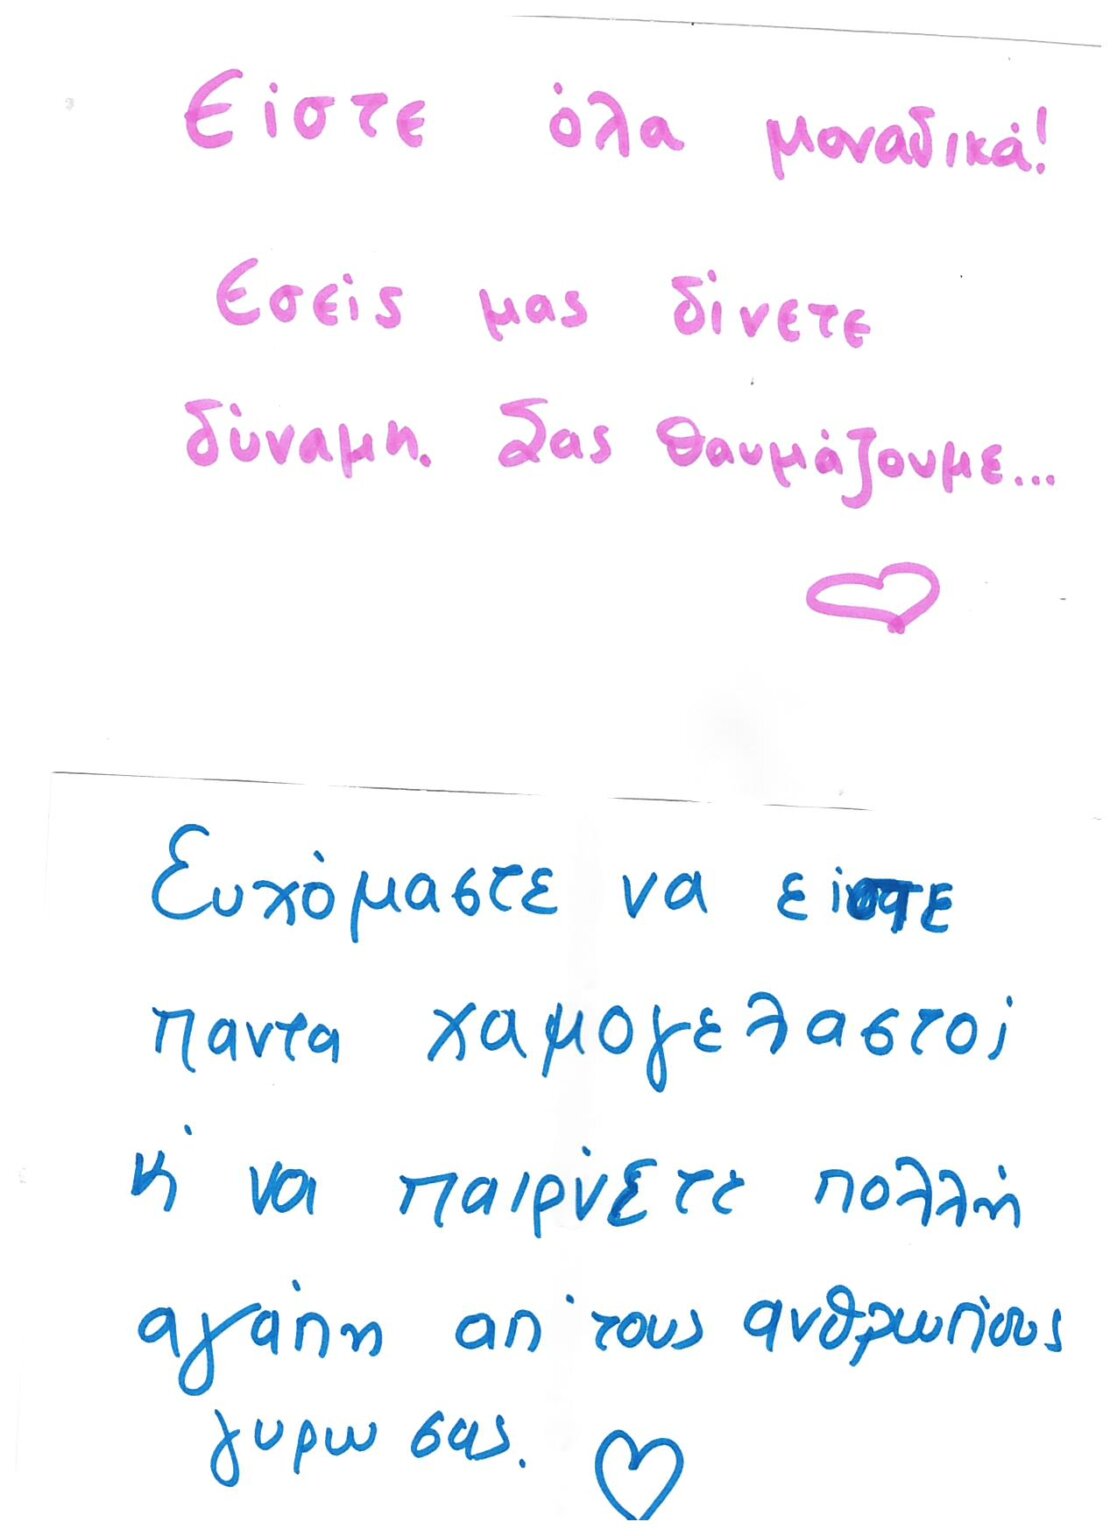 Είστε όλα μοναδικά!
Εσείς μας δίνετε
δύναμη. Σας θαυμάζουμε...
Ευχόμαστε να είστε
παντα χαμογελαστοί
κ' να παίρνετε πολλή
αγάπη απ' τους ανθρωπους
γυρω σας.